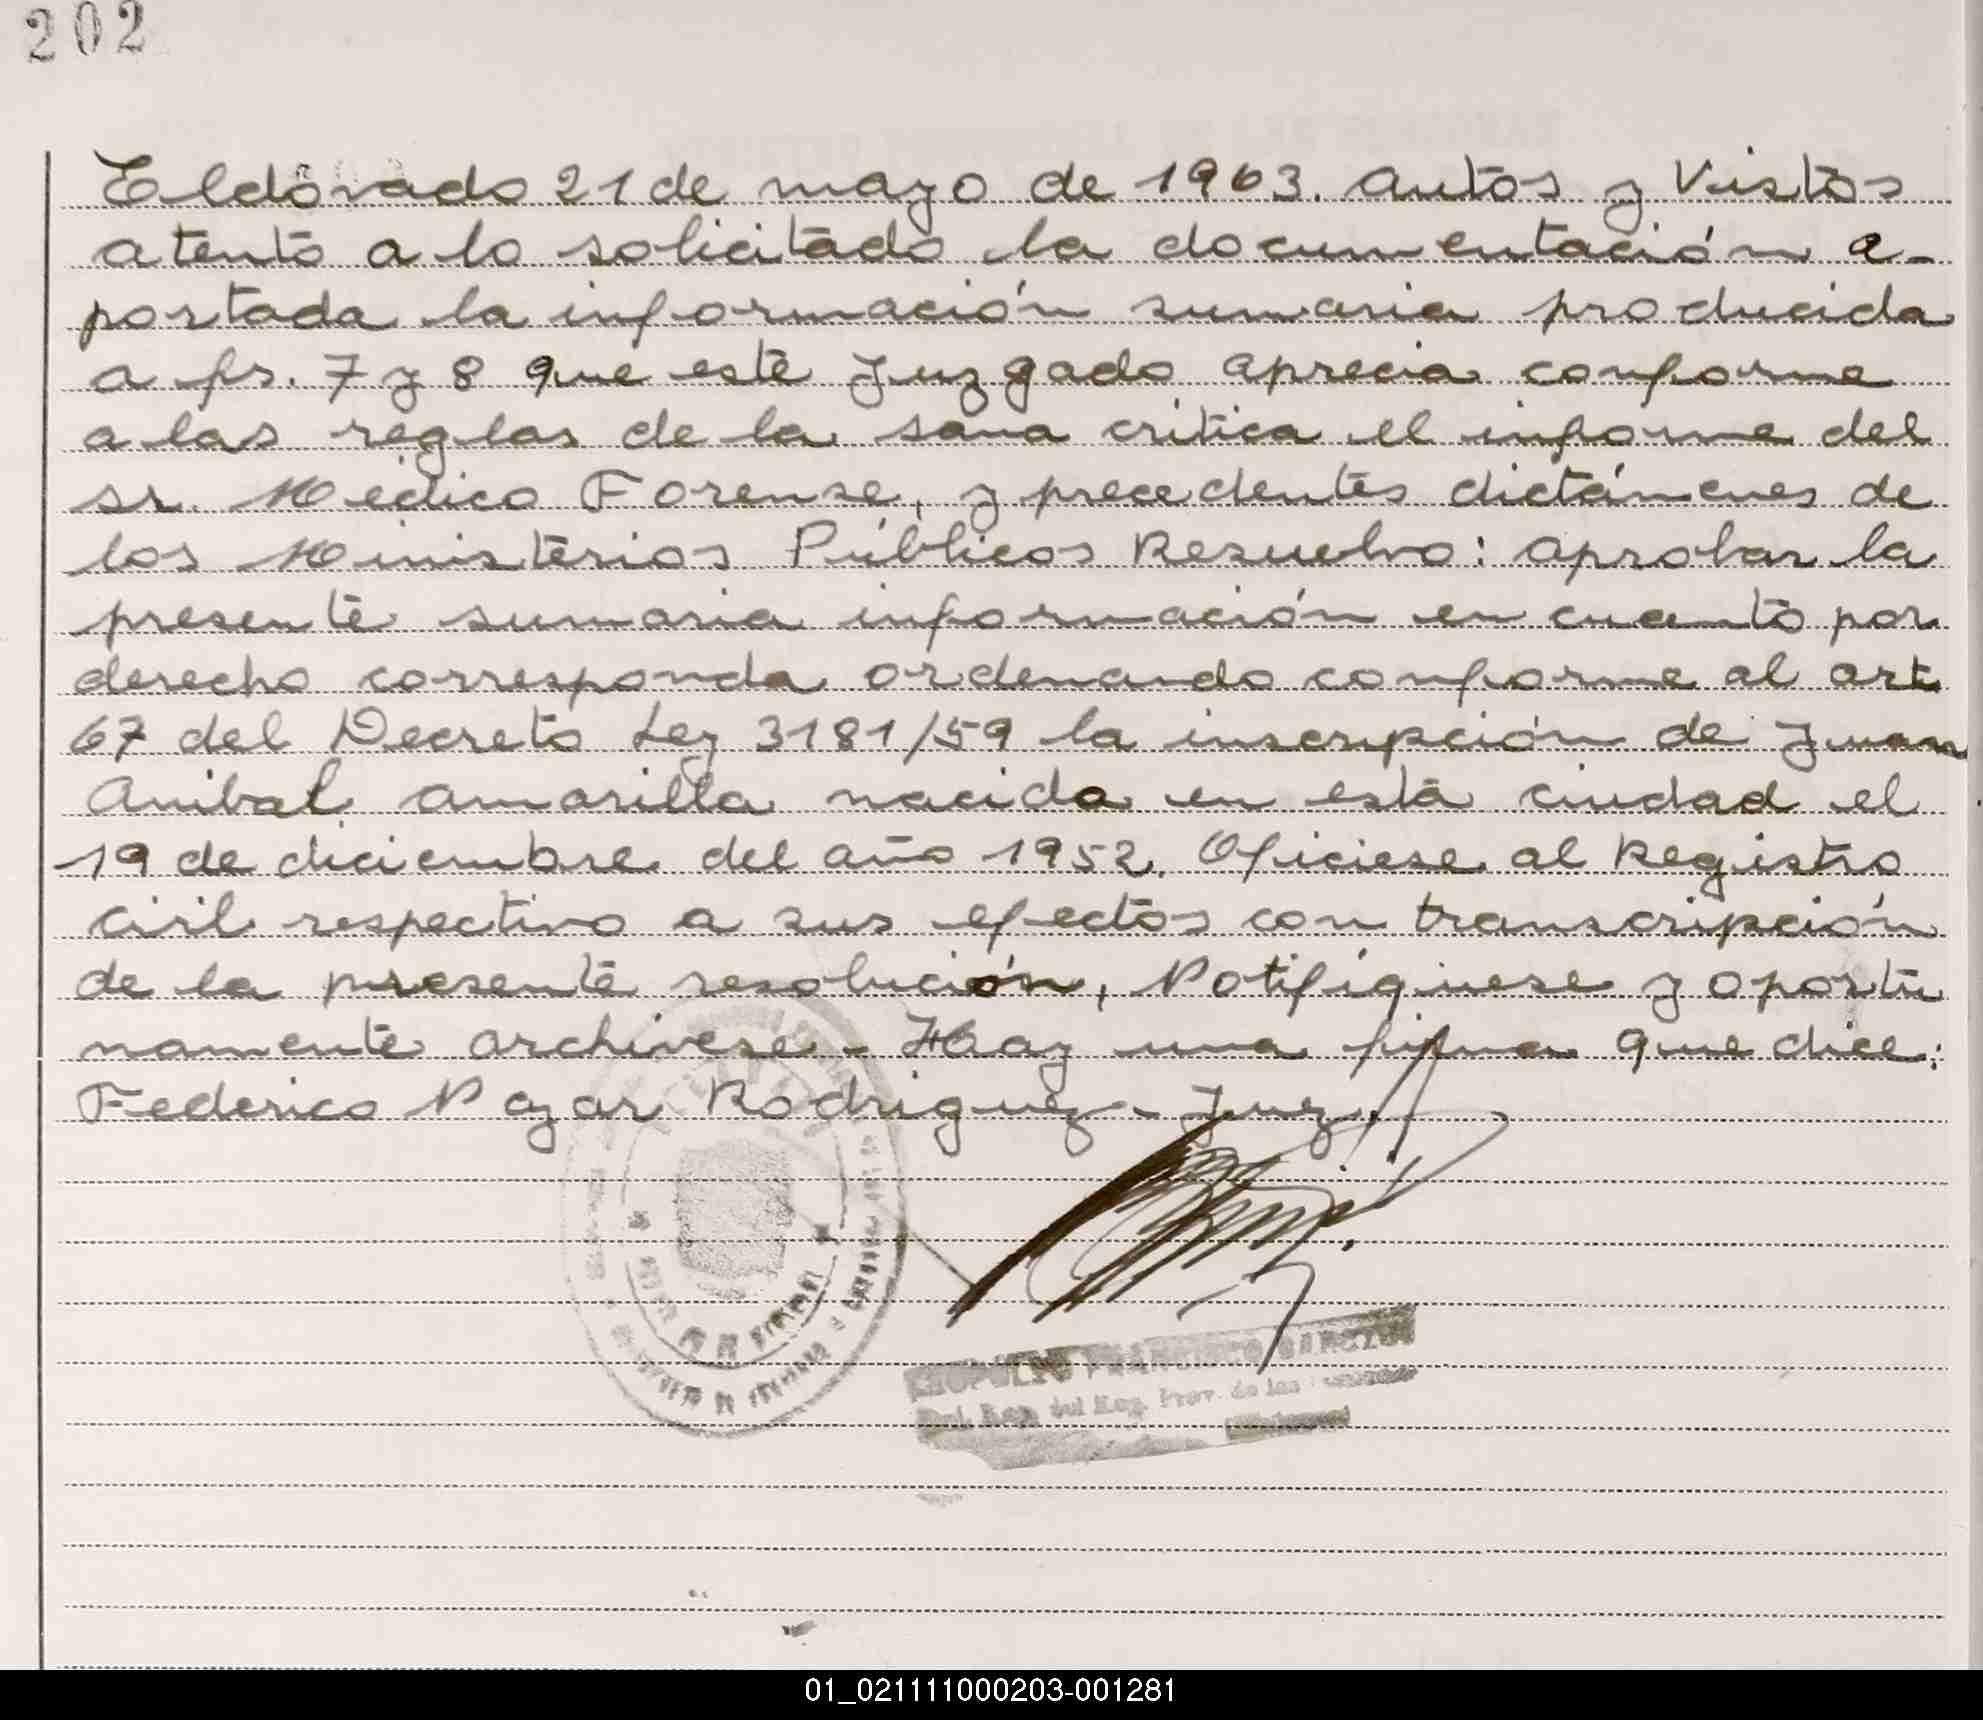 202
Eldorado 21 de mayo de 1963. Autos y Vistos
atento a lo solicitado la documentación a-
portada la información sumaria producida
a fs. 7 y 8 que este Juzgado aprecia conforme
a las reglas de la sana critica el informe del
sr. Médico Forense, y precedentes dictámenes de
los Ministerios Públicos Resuelvo: aprobar la
presente sumaria información en cuanto por
derecho corresponda ordenando conforme al art
67 del Decreto Ley 3181/59 la inscripción de Juan
Anibal Amarilla nacida en está ciudad el
19 de diciembre del año 1952. Ofíciese al Registro
Civil respectivo a sus efectos con transcripción
de la presente resolución, Notifíquese y oportu
namente archívese - Hay una firma que dice:
Federico Nazar Rodriguez - Juez.
FRANCISCO
del Reg. Prov. de las
01_021111000203-001281